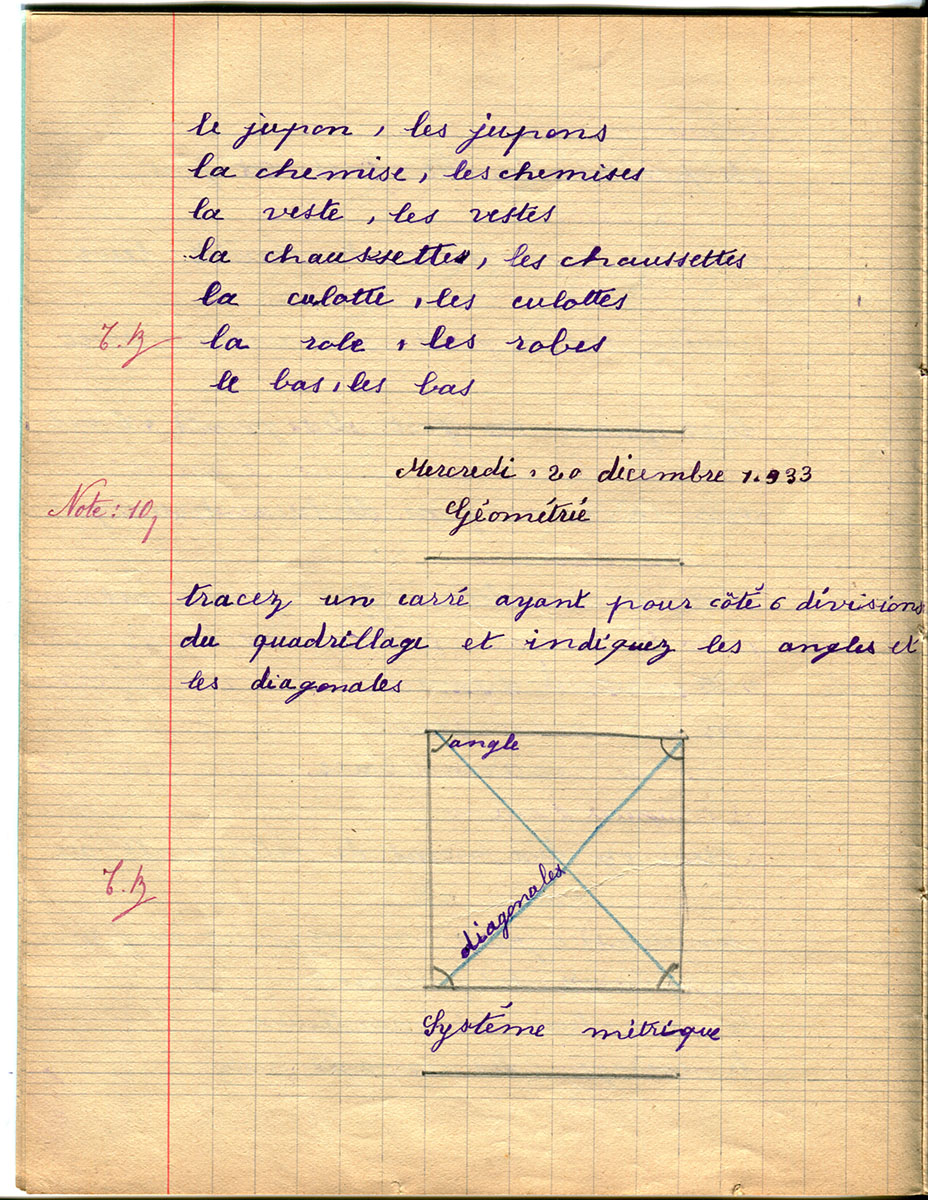 le jupon, les jupons
la chemise, les chemises
la veste, les vestes
la chaussette, les chaussettes
la culotte, les culottes
T.B
la robe, les robes
le bas, les bas
Mercredi, 20 décembre 1.933
Note: 10
Géométrié
tracez un carré ayant pour côté 6 divisions
du quadrillage et indiquez les angles et
les diagonales
angle
T.B
diagonales
Système métrique